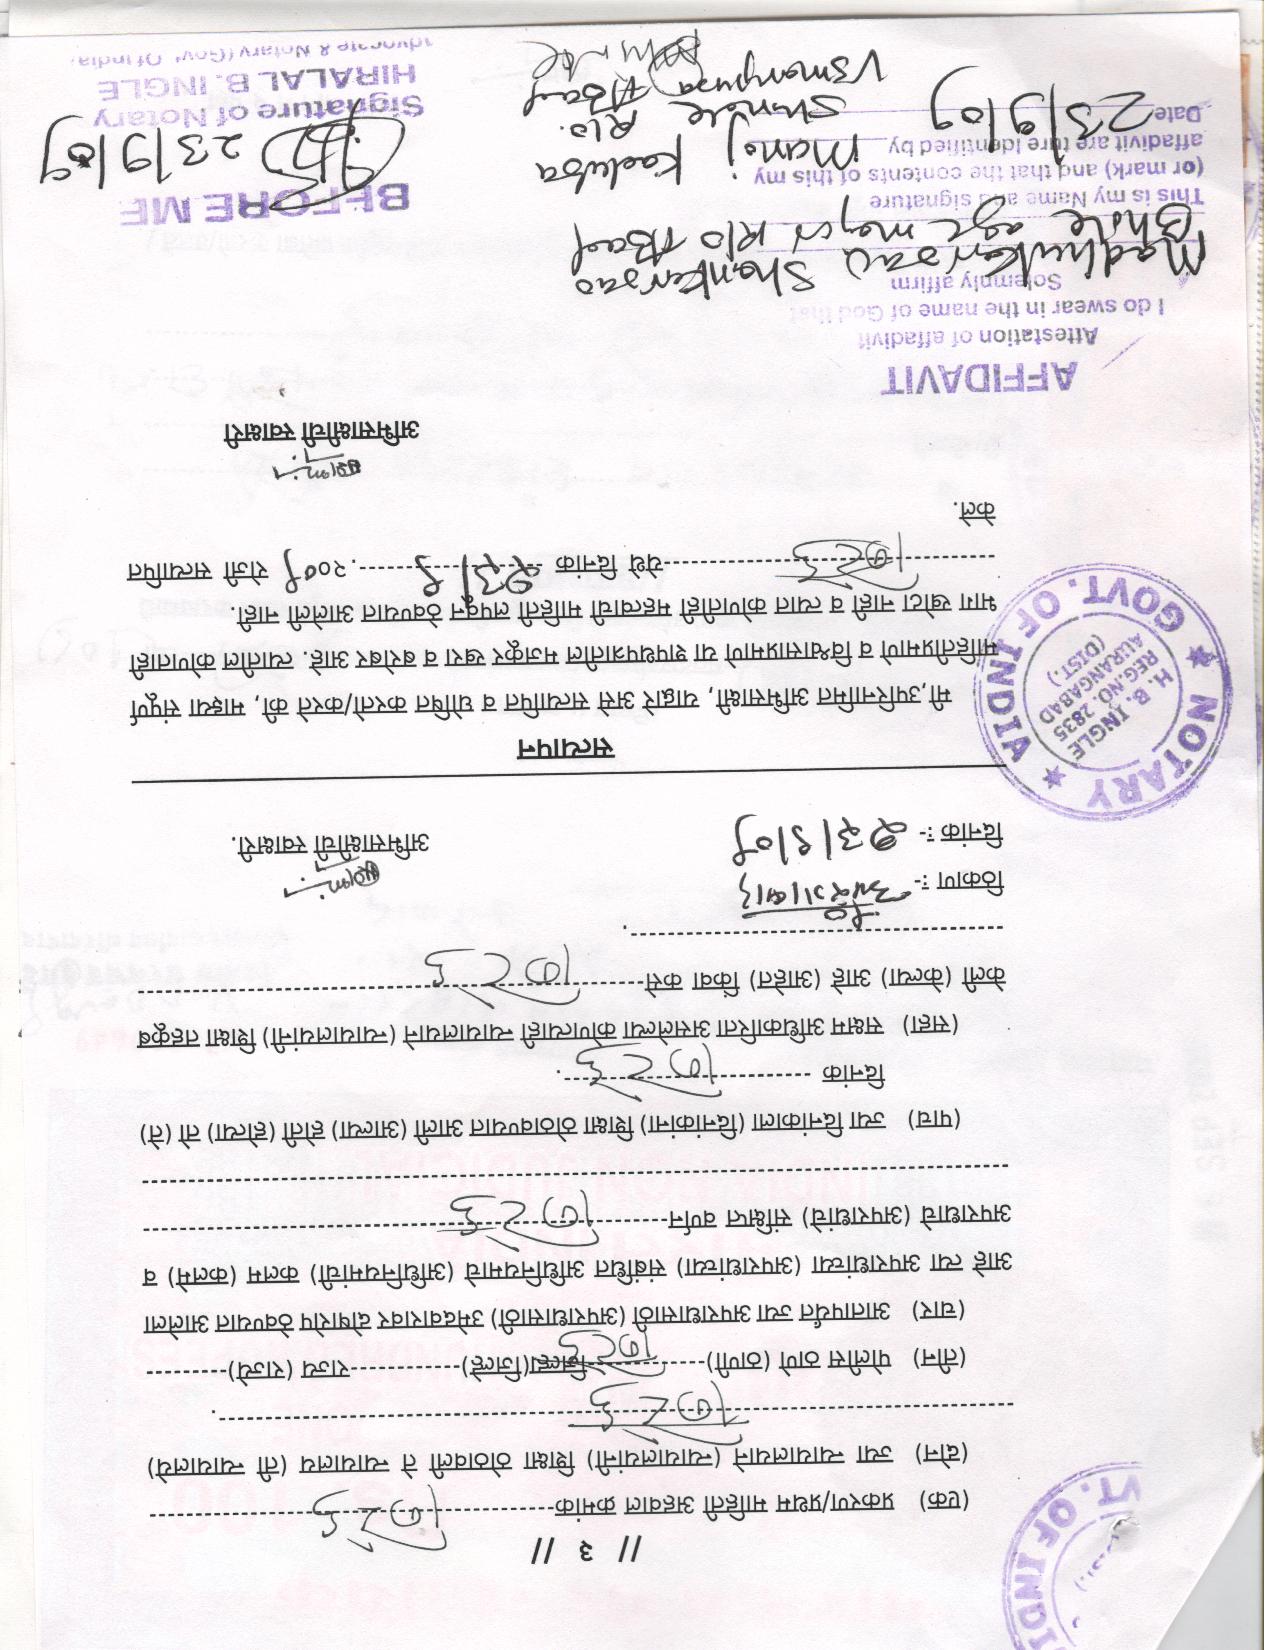 // ३ //
(एक) प्रकरण/प्रथम माहिती अहवाल क्रमांक-----------------
(दोन) ज्या न्यायालयाने (न्यायालयांनी) शिक्षा ठोठावली ते न्यायालय (ती न्यायालये)
(तीन) पोलीस ठाणे (ठाणी)------------जिल्हा(जिल्हे)------------राज्य (राज्ये)---------
(चार) आतापर्यंत ज्या अपराधासाठी (अपराधासाठी) उमेदवारावर दोषारोप ठेवण्यात आलेला
आहे त्या अपराधांच्या (अपराधांच्या) संबंधित अधिनियमाचे (अधिनियमांची) कलम (कलमे) व
अपराधाचे (अपराधांचे) संक्षिप्त वर्णन-----------------
(पाच) ज्या दिनांकाला (दिनांकांना) शिक्षा ठोठावण्यात आली (आल्या) होती (होत्या) तो (ते)
दिनांक -----------------.
(सहा) सक्षम अधिकारिता असलेल्या कोणत्याही न्यायालयाने (न्यायालयांनी) शिक्षा तहकूब
केली (केल्या) आहे (आहेत) किंवा कसे-----------------
ठिकाण :- औरंगाबाद
दिनांक :- २३/९/०९
अभिसाक्षीची स्वाक्षरी.
सत्यापन
मी,उपरिनामित अभिसाक्षी, याद्वारे असे सत्यापित व घोषित करतो/करते की, माझ्या संपूर्ण
माहितीप्रमाणे व विश्वासाप्रमाणे या शपथपत्रातील मजकूर खरा व बरोबर आहे. त्यातील कोणताही
भाग खोटा नाही व त्यात कोणतीही महत्वाची माहिती लपवून ठेवण्यात आलेली नाही.
-----------------येथे दिनांक २३/९ .२००९ रोजी सत्यापित
केले.
अभिसाक्षीची स्वाक्षरी
NOTARY ★ GOVT. OF INDIA ★
H. B. INGLE
REG.NO. 2835
AURANGABAD
(DIST.)
VT. OF INDI
AFFIDAVIT
Attestation of affadivit
I do swear in the name of God that
Solemnly affirm
Madhukarrao Shankarrao
Bhole age major R/o A'Bad
This is my Name and signature
(or mark) and that the contents of this my
affadivit are ture Identified by Manoj Kaduba
Shinde R/o.
Date 23/9/09 Usmanpura A'Bad
BEFORE ME
23/9/09
Signature of Notary
HIRALAL B. INGLE
Advocate & Notary (Gov. Of India)